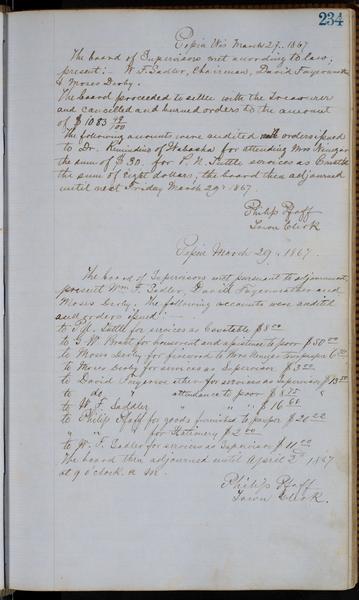 234
Pepin Wis March 27. 1867
The board of Supervisors met according to law;
present; - W. F. Sadler, Chairman, David Fayerweather
& Moses Derby.
The board proceeded to settle with the Treasurer
and cancelled and burned orders to the amount
of $1083 49/100
The following accounts were audited with orders issued
to Dr. of Wabasha for attending Mrs
the sum of $30. for P. N. Tuttle services as Constable
the sum of eight dollars, the board then adjourned
until next Friday March 29th 1867.
Philip Pfaff
Town Clerk
Pepin March 29th. 1867.
The board of Supervisors met pursuant to adjournment,
present Wm. F. Sadler, David Fayerweather and
Moses Derby. The following accounts were audited
and orders issued: —
to P. N. Tuttle for services as Constable $8.00
to G. W. Pratt for house rent and assistance to poor $50.00
to Moses Derby for firewood to Mrs pauper 6
to Moses Derby for services as Supervisor $3.00
to David Fayerweather for services as Supervisor $13.50
to do " attendance to poor $8.75 "
to W. F. Saddler " " " $16
to Philip Pfaff for goods furnished to pauper $20.22
" " " for Stationery $2.00
to W. F. Sadler for services as Supervisor $11.00
The board then adjourned until April 2d 1867
at 9 o'clock. a. m.
Philip Pfaff
Town Clerk.